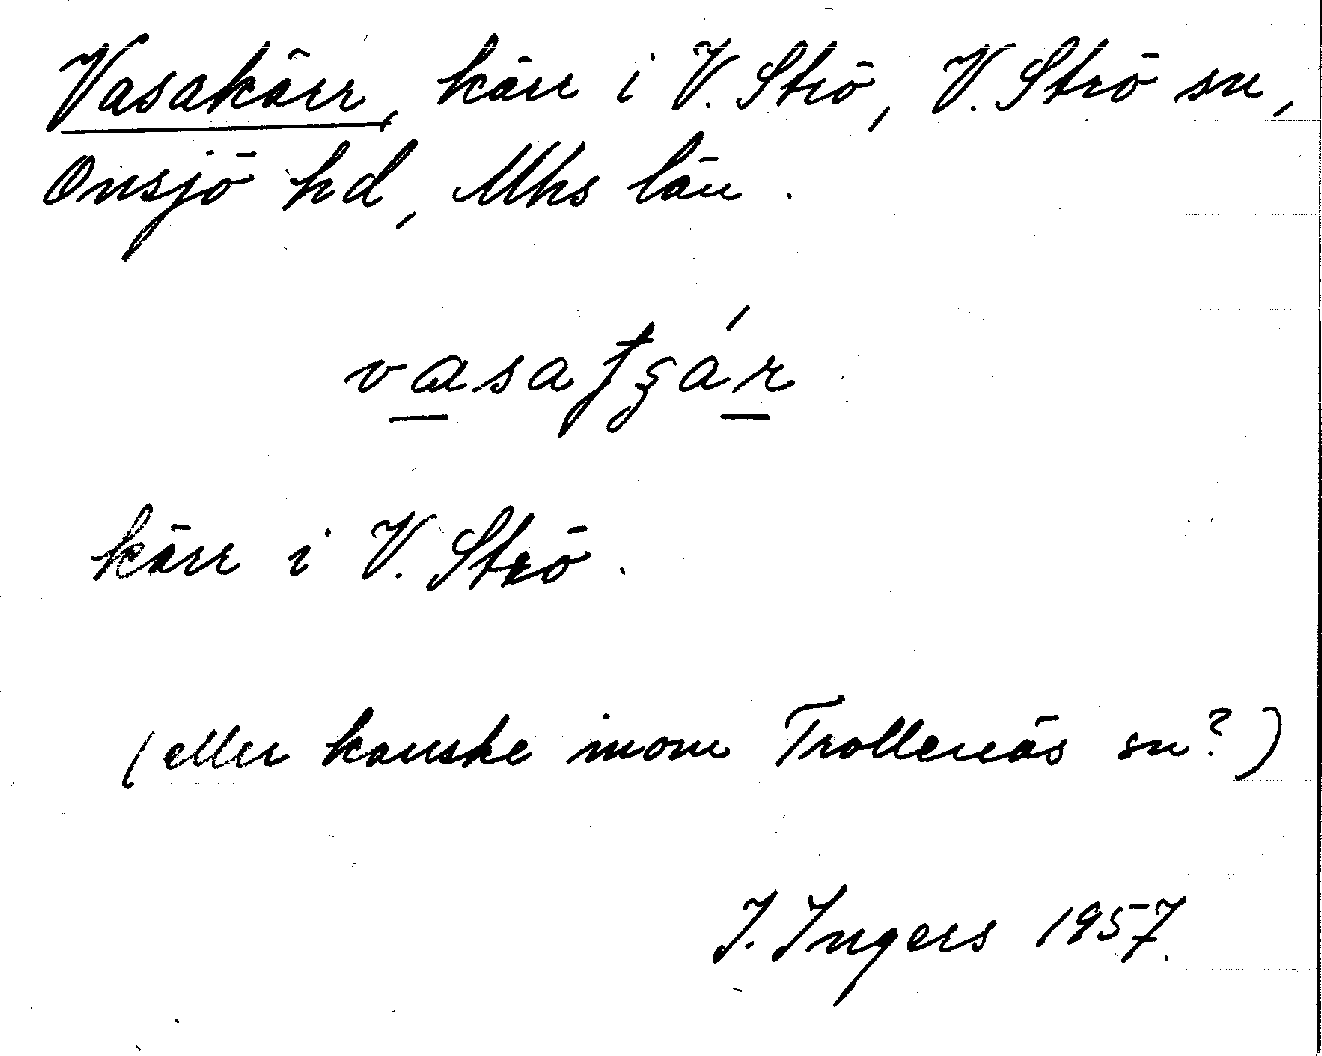 Vasakärr, kärr i V. Strö, V. Strö sn,
Onsjö hd, Mhs län.
kärr i V. Strö.
(eller kanske inom Trollenäs sn?)
I. Ingers 1957.